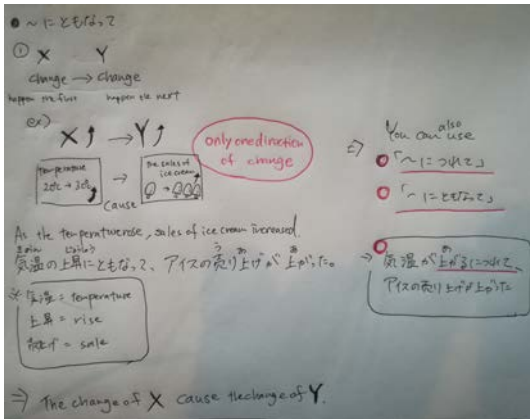 ●～にともなって
① X Y
change → change
happen the first happen the next
ex)
X ↑ → Y ↑
only one direction
of change
temperature
20℃ → 30℃
→
cause
the sales of
ice cream
As the temperature rose, sales of ice cream increased.
きおん じょうしょう う あ あ
気温の上昇にともなって、アイスの売り上げが上がった。
※気温 = temperature
上昇 = rise
売上げ = sale
⇒ The change of X cause the change of Y.
⇒ You can also use
「～につれて」
「～にともなって」
あ
⇒ 気温が上がるにつれて、
アイスの売り上げが上がった